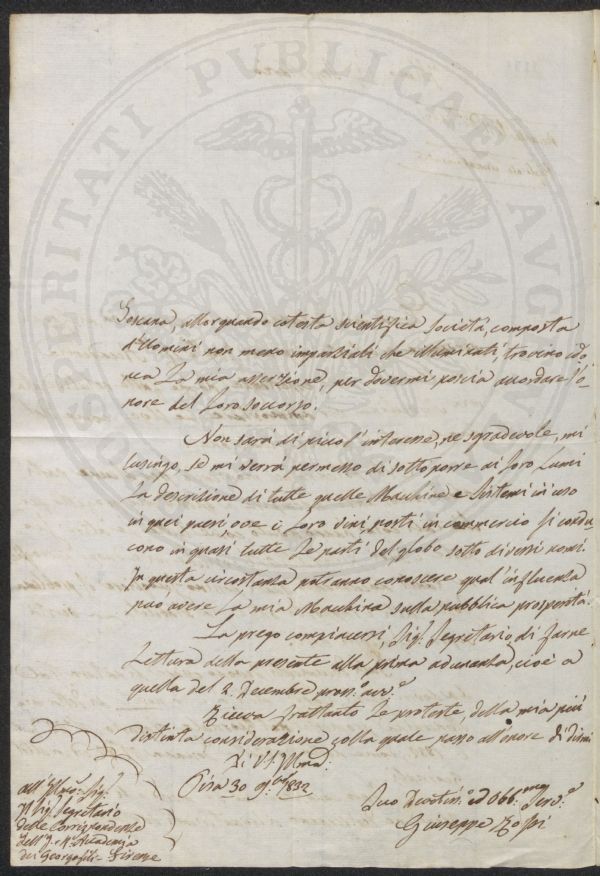 PROSPERITATI PUBLICAE AUGENDAE
Toscana, allorquando cotesta scientifica Società, composta
d'Uomini non meno imparziali che illuminati, trovino ido-
nea la mia asserzione, per dovermi poscia accordare l'o-
nore del Loro soccorso.
Non sarà di piccol' interesse, ne sgradevole, mi
lusingo, se mi verrà permesso di sottoporre ai Loro Lumi
la descrizione di tutte quelle Macchine e Sistemi in uso
in quei paesi, ove i Loro vini, posti in commercio si condu-
cono in quasi tutte le parti del globo sotto diversi nomi.
In questa circostanza potranno conoscere qual' influenza
può avere la mia Macchina sulla pubblica prosperità.
La prego compiacersi, Sig. Segretario di farne
Lettura della presente alla prima adunanza, cioè a
quella del 2. Decembre pross.o
Riceva frattanto le proteste della mia più
distinta considerazione colla quale passo all'onore di dirmi
Di V.S. Illma:
Pisa 30 9.bre 1832
Suo Devotis.o ed Obb.mo Serv.e
Giuseppe Rossi
All' Illmo: Sig.
Il Sig. Segretario
delle Corrispondenze
dell' I. R. Accademia
dei Georgofili - Firenze